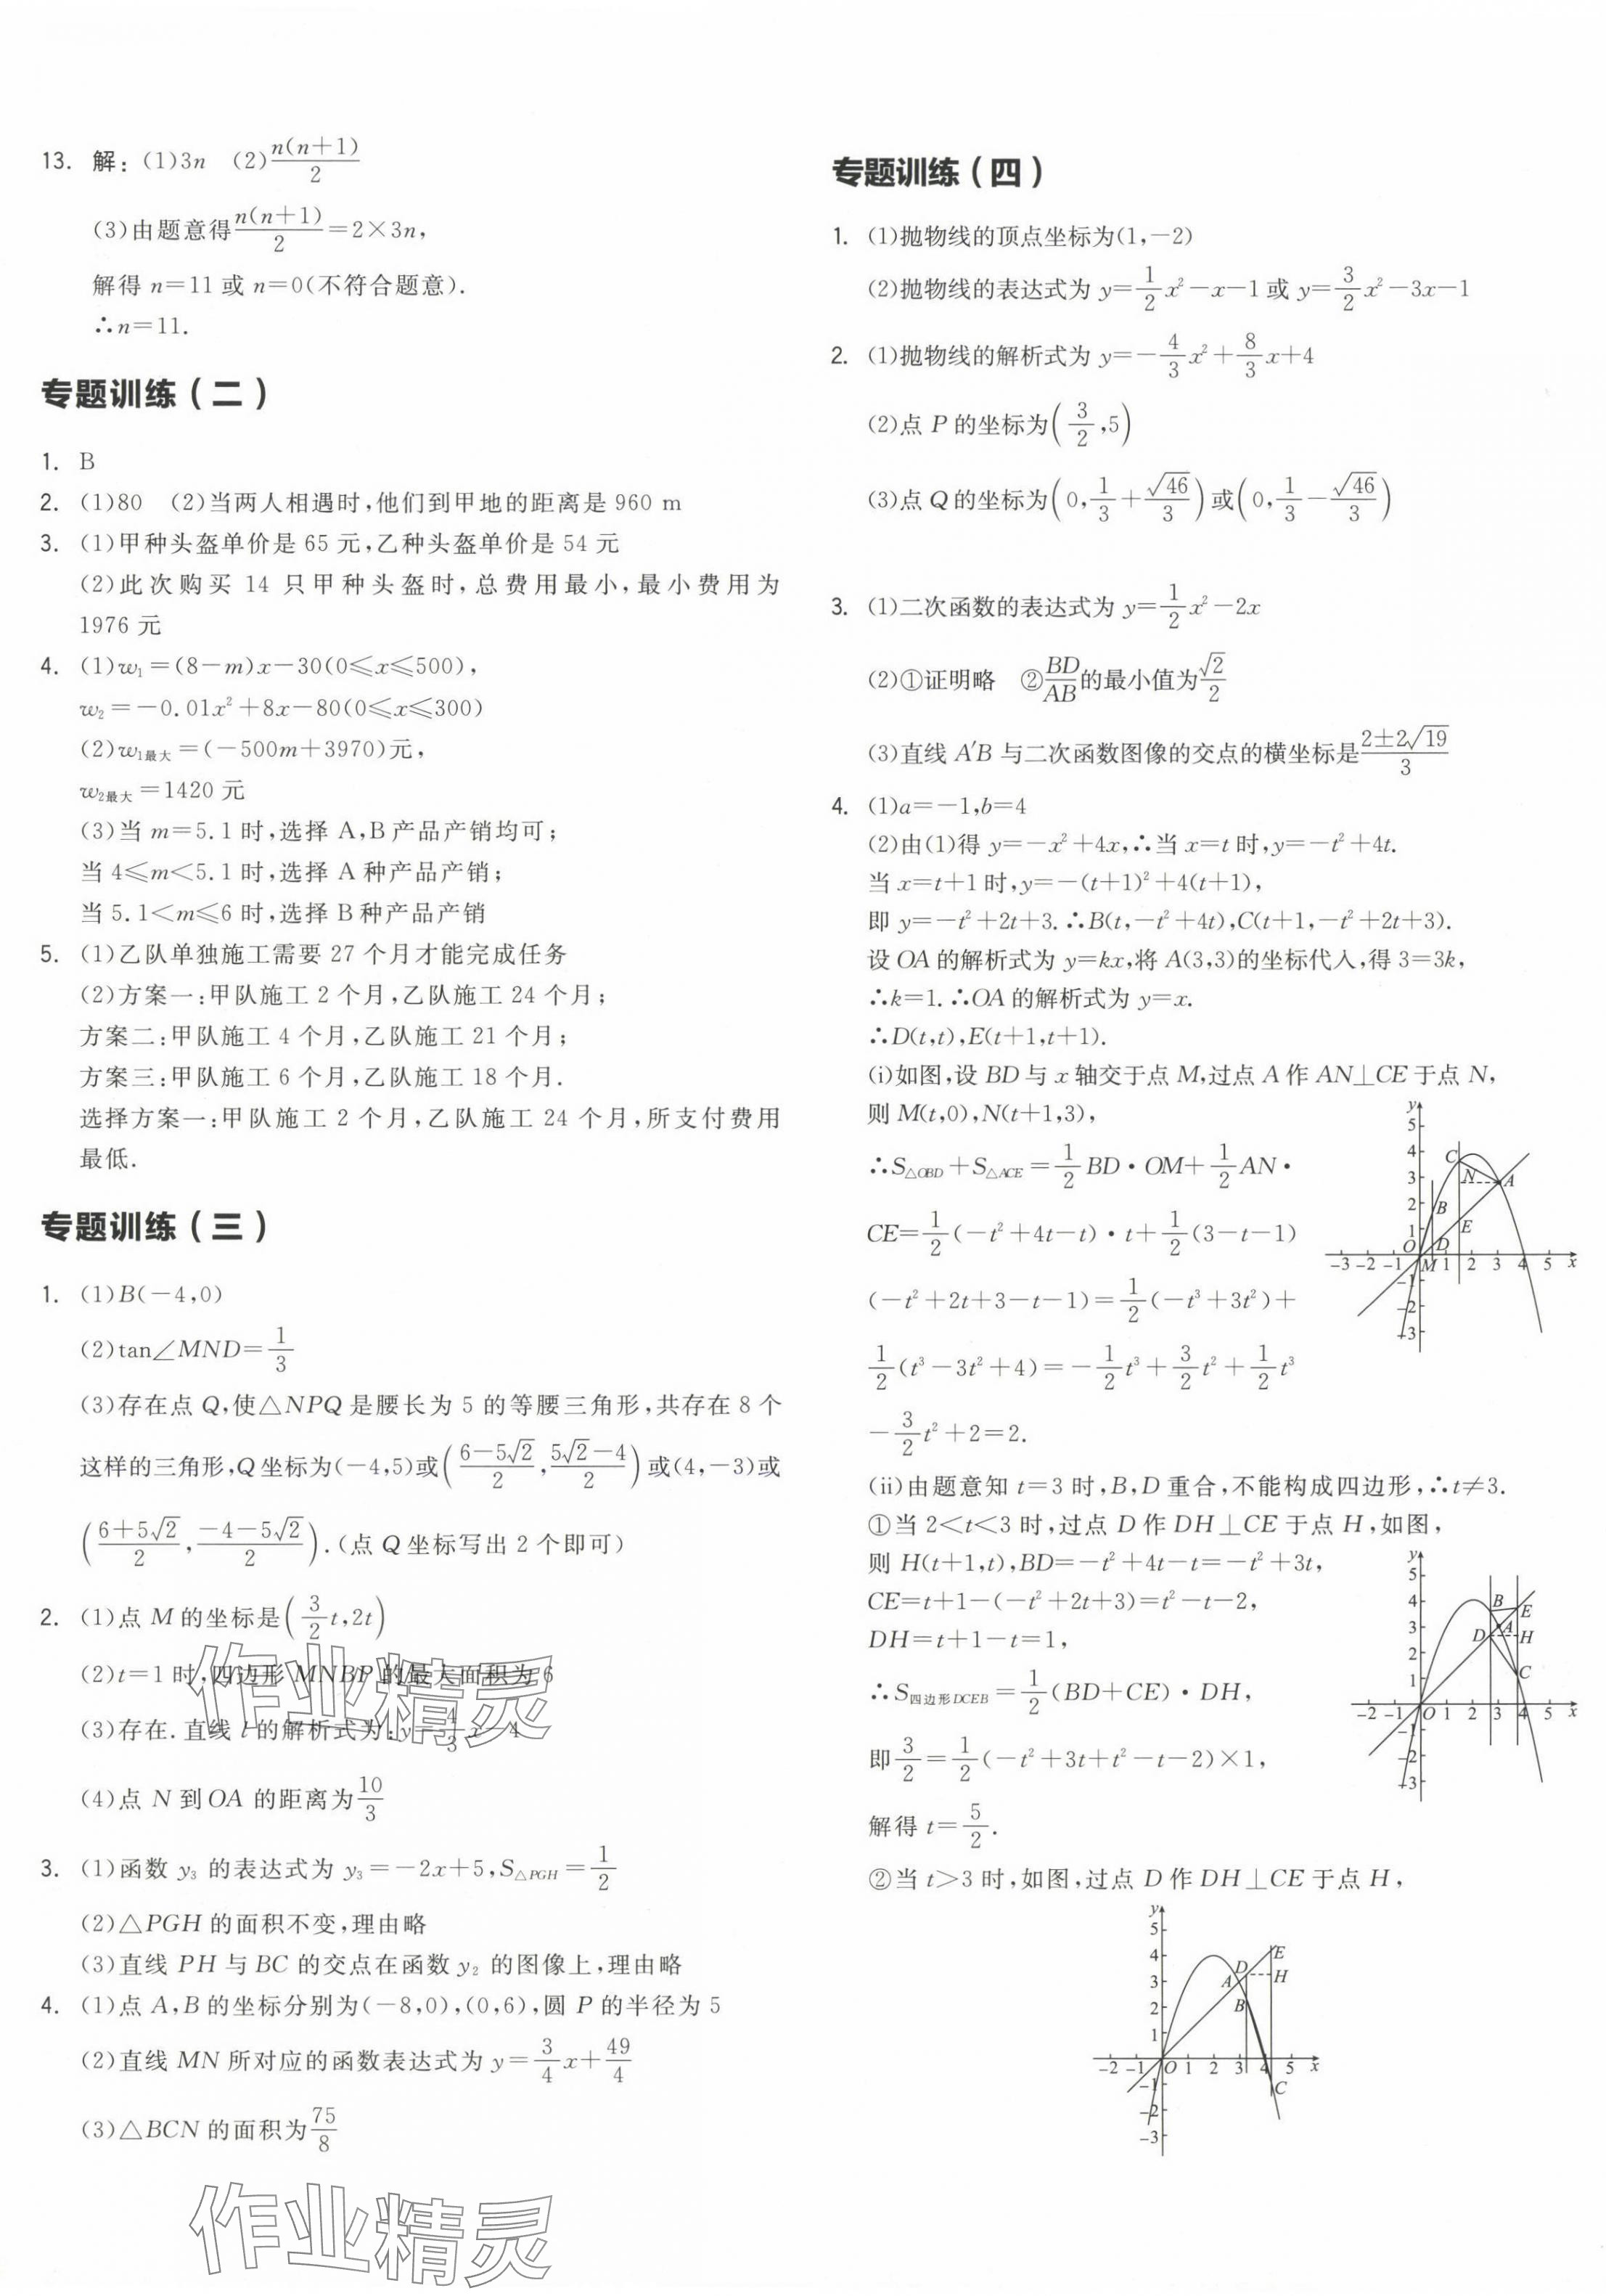 13. 解:(1)3n (2)n(n+1)/2
(3)由题意得n(n+1)/2=2×3n,
解得 n=11 或 n=0(不符合题意).
∴n=11.
专题训练(二)
1. B
2. (1)80 (2)当两人相遇时,他们到甲地的距离是 960 m
3. (1)甲种头盔单价是 65 元,乙种头盔单价是 54 元
(2)此次购买 14 只甲种头盔时,总费用最小,最小费用为
1976 元
4. (1)w₁=(8-m)x-30(0≤x≤500),
w₂=-0.01x²+8x-80(0≤x≤300)
(2)w₁最大=(-500m+3970)元,
w₂最大=1420 元
(3)当 m=5.1 时,选择 A,B产品产销均可;
当 4≤m<5.1 时,选择 A 种产品产销;
当 5.1<m≤6 时,选择 B种产品产销
5. (1)乙队单独施工需要 27 个月才能完成任务
(2)方案一:甲队施工 2 个月,乙队施工 24 个月;
方案二:甲队施工 4 个月,乙队施工 21 个月;
方案三:甲队施工 6 个月,乙队施工 18 个月.
选择方案一:甲队施工 2 个月,乙队施工 24 个月,所支付费用
最低.
专题训练(三)
1. (1)B(-4,0)
(2)tan∠MND=1/3
(3)存在点 Q,使△NPQ 是腰长为 5 的等腰三角形,共存在 8 个
这样的三角形,Q坐标为(-4,5)或((6-5√2)/2,(5√2-4)/2)或(4,-3)或
((6+5√2)/2,(-4-5√2)/2).(点 Q坐标写出 2 个即可)
2. (1)点 M 的坐标是(3/2t,2t)
(2)t=1 时,四边形 MNBP 的最大面积为 6
(3)存在.直线 l 的解析式为:y=4/3x-4
(4)点 N 到OA 的距离为10/3
3. (1)函数 y₃ 的表达式为 y₃=-2x+5,S△PGH=1/2
(2)△PGH 的面积不变,理由略
(3)直线 PH 与 BC 的交点在函数 y₂ 的图像上,理由略
4. (1)点 A,B 的坐标分别为(-8,0),(0,6),圆 P 的半径为 5
(2)直线 MN 所对应的函数表达式为 y=3/4x+49/4
(3)△BCN 的面积为75/8
专题训练(四)
1. (1)抛物线的顶点坐标为(1,-2)
(2)抛物线的表达式为 y=1/2x²-x-1 或 y=3/2x²-3x-1
2. (1)抛物线的解析式为 y=-4/3x²+8/3x+4
(2)点 P 的坐标为(3/2,5)
(3)点 Q 的坐标为(0,1/3+√46/3)或(0,1/3-√46/3)
3. (1)二次函数的表达式为 y=1/2x²-2x
(2)①证明略 ②BD/AB的最小值为√2/2
(3)直线 A′B 与二次函数图像的交点的横坐标是(2±2√19)/3
4. (1)a=-1,b=4
(2)由(1)得 y=-x²+4x,∴当 x=t 时,y=-t²+4t.
当 x=t+1 时,y=-(t+1)²+4(t+1),
即 y=-t²+2t+3.∴B(t,-t²+4t),C(t+1,-t²+2t+3).
设 OA 的解析式为 y=kx,将 A(3,3)的坐标代入,得 3=3k,
∴k=1.∴OA 的解析式为 y=x.
∴D(t,t),E(t+1,t+1).
(i)如图,设 BD 与 x 轴交于点 M,过点 A 作 AN⊥CE 于点 N,
则 M(t,0),N(t+1,3),
∴S△OBD+S△ACE=1/2BD·OM+1/2AN·
CE=1/2(-t²+4t-t)·t+1/2(3-t-1)
(-t²+2t+3-t-1)=1/2(-t³+3t²)+
1/2(t³-3t²+4)=-1/2t³+3/2t²+1/2t³
-3/2t²+2=2.
(ii)由题意知 t=3 时,B,D 重合,不能构成四边形,∴t≠3.
①当 2<t<3 时,过点 D 作 DH⊥CE 于点 H,如图,
则 H(t+1,t),BD=-t²+4t-t=-t²+3t,
CE=t+1-(-t²+2t+3)=t²-t-2,
DH=t+1-t=1,
∴S四边形DCEB=1/2(BD+CE)·DH,
即3/2=1/2(-t²+3t+t²-t-2)×1,
解得 t=5/2.
②当 t>3 时,如图,过点 D 作 DH⊥CE 于点 H,
作业精灵
作业精灵